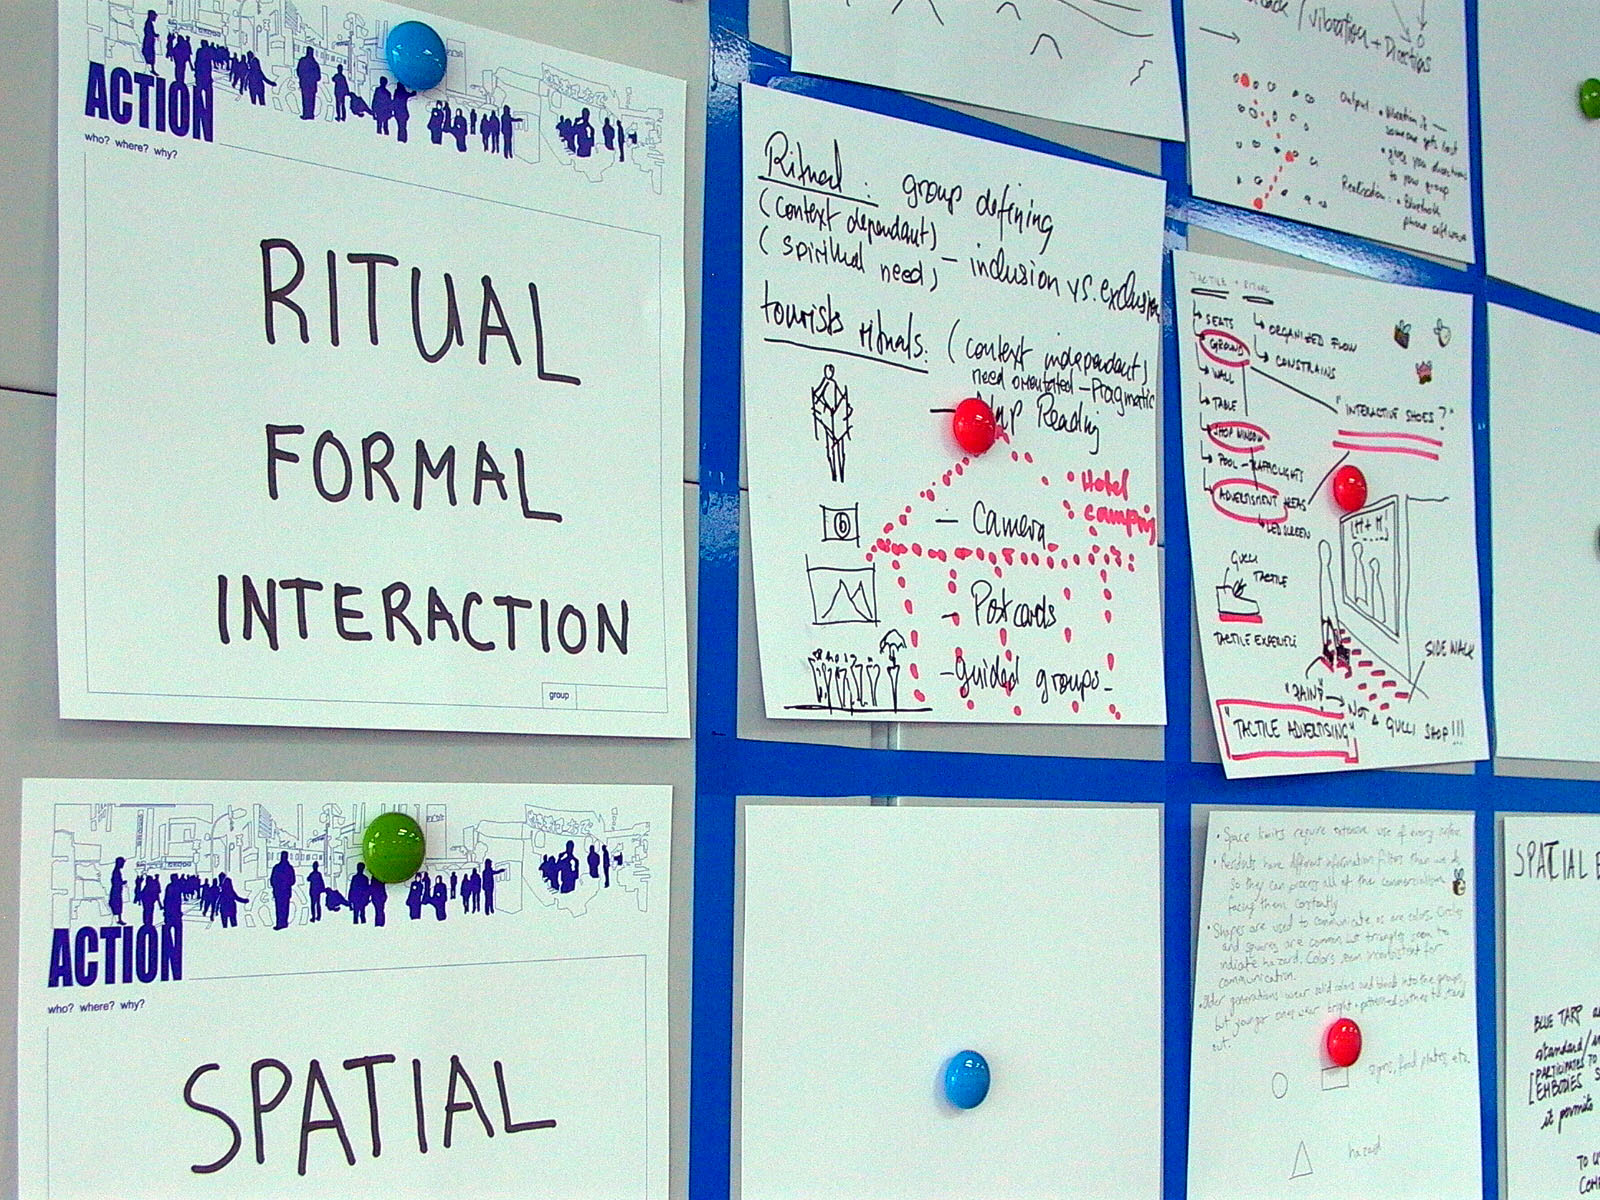 ACTION
who? where? why?
RITUAL
FORMAL
INTERACTION
group
ACTION
who? where? why?
SPATIAL
Ritual: group defining
(context dependant)
(spiritual need) - inclusion vs. exclusion
tourists rituals: (context independant)
need orientated - Pragmatic
- Map Reading
Hotel
camping
- Camera
- Postcards
- guided groups -
/ vibration + Directions
Output:
• vibration if
someone gets lost
• gives you directions
to your group
Realisation: • Bluetooth
phone software
TACTILE + RITUAL
SEATS
GROUND
WALL
TABLE
SHOP WINDOW
POOL - TRAFFIC LIGHTS
ADVERTISMENT AREAS
LED SCREEN
ORGANIZED FLOW
CONSTRAINS
"INTERACTIVE SHOES?"
H+M
GUCCI
TACTILE
TACTILE EXPERIE
SIDE WALK
"PAIN"
NOT A GUCCI SHOP!!!
"TACTILE ADVERTISING"
• Space limits require extensive use of every surface
• Residents have different information filters than we do,
so they can process all of the commercialism
facing them constantly
• Shapes are used to communicate as are colors. Circles
and squares are common but triangles seem to
indicate hazard. Colors seem inconsistent for
communication.
• Older generations wear solid colors and blends into the groups,
but younger ones wear bright + patterned clothes to stand
out.
signs, food plates, etc.
hazard
SPATIAL
BLUE TARP
standard/
PARTICIPATES TO
[EMBODIES
it permits